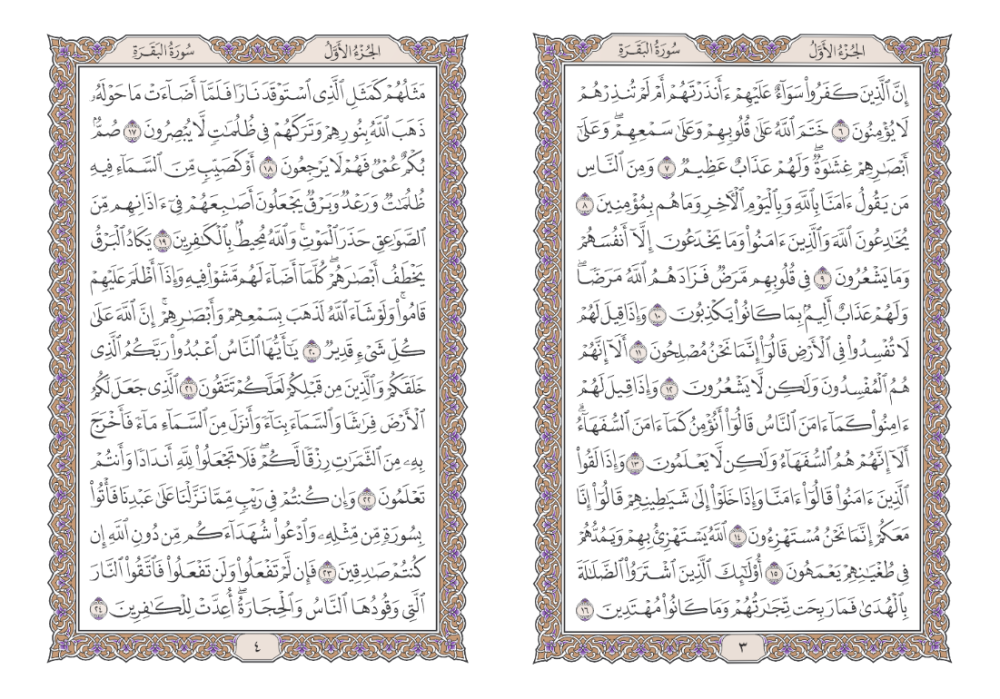 الجُزْءُ الأَوَّلُ
سُورَةُ البَقَرَةِ
إِنَّ ٱلَّذِينَ كَفَرُواْ سَوَآءٌ عَلَيۡهِمۡ ءَأَنذَرۡتَهُمۡ أَمۡ لَمۡ تُنذِرۡهُمۡ
لَا يُؤۡمِنُونَ ٦ خَتَمَ ٱللَّهُ عَلَىٰ قُلُوبِهِمۡ وَعَلَىٰ سَمۡعِهِمۡۖ وَعَلَىٰٓ
أَبۡصَٰرِهِمۡ غِشَٰوَةٞۖ وَلَهُمۡ عَذَابٌ عَظِيمٞ ٧ وَمِنَ ٱلنَّاسِ
مَن يَقُولُ ءَامَنَّا بِٱللَّهِ وَبِٱلۡيَوۡمِ ٱلۡأٓخِرِ وَمَا هُم بِمُؤۡمِنِينَ ٨
يُخَٰدِعُونَ ٱللَّهَ وَٱلَّذِينَ ءَامَنُواْ وَمَا يَخۡدَعُونَ إِلَّآ أَنفُسَهُمۡ
وَمَا يَشۡعُرُونَ ٩ فِي قُلُوبِهِم مَّرَضٞ فَزَادَهُمُ ٱللَّهُ مَرَضٗاۖ
وَلَهُمۡ عَذَابٌ أَلِيمُۢ بِمَا كَانُواْ يَكۡذِبُونَ ١٠ وَإِذَا قِيلَ لَهُمۡ
لَا تُفۡسِدُواْ فِي ٱلۡأَرۡضِ قَالُوٓاْ إِنَّمَا نَحۡنُ مُصۡلِحُونَ ١١ أَلَآ إِنَّهُمۡ
هُمُ ٱلۡمُفۡسِدُونَ وَلَٰكِن لَّا يَشۡعُرُونَ ١٢ وَإِذَا قِيلَ لَهُمۡ
ءَامِنُواْ كَمَآ ءَامَنَ ٱلنَّاسُ قَالُوٓاْ أَنُؤۡمِنُ كَمَآ ءَامَنَ ٱلسُّفَهَآءُۗ
أَلَآ إِنَّهُمۡ هُمُ ٱلسُّفَهَآءُ وَلَٰكِن لَّا يَعۡلَمُونَ ١٣ وَإِذَا لَقُواْ
ٱلَّذِينَ ءَامَنُواْ قَالُوٓاْ ءَامَنَّا وَإِذَا خَلَوۡاْ إِلَىٰ شَيَٰطِينِهِمۡ قَالُوٓاْ إِنَّا
مَعَكُمۡ إِنَّمَا نَحۡنُ مُسۡتَهۡزِءُونَ ١٤ ٱللَّهُ يَسۡتَهۡزِئُ بِهِمۡ وَيَمُدُّهُمۡ
فِي طُغۡيَٰنِهِمۡ يَعۡمَهُونَ ١٥ أُوْلَٰٓئِكَ ٱلَّذِينَ ٱشۡتَرَوُاْ ٱلضَّلَٰلَةَ
بِٱلۡهُدَىٰ فَمَا رَبِحَت تِّجَٰرَتُهُمۡ وَمَا كَانُواْ مُهۡتَدِينَ ١٦
٣
الجُزْءُ الأَوَّلُ
سُورَةُ البَقَرَةِ
مَثَلُهُمۡ كَمَثَلِ ٱلَّذِي ٱسۡتَوۡقَدَ نَارٗا فَلَمَّآ أَضَآءَتۡ مَا حَوۡلَهُۥ
ذَهَبَ ٱللَّهُ بِنُورِهِمۡ وَتَرَكَهُمۡ فِي ظُلُمَٰتٖ لَّا يُبۡصِرُونَ ١٧ صُمُّۢ
بُكۡمٌ عُمۡيٞ فَهُمۡ لَا يَرۡجِعُونَ ١٨ أَوۡ كَصَيِّبٖ مِّنَ ٱلسَّمَآءِ فِيهِ
ظُلُمَٰتٞ وَرَعۡدٞ وَبَرۡقٞ يَجۡعَلُونَ أَصَٰبِعَهُمۡ فِيٓ ءَاذَانِهِم مِّنَ
ٱلصَّوَٰعِقِ حَذَرَ ٱلۡمَوۡتِۚ وَٱللَّهُ مُحِيطُۢ بِٱلۡكَٰفِرِينَ ١٩ يَكَادُ ٱلۡبَرۡقُ
يَخۡطَفُ أَبۡصَٰرَهُمۡۖ كُلَّمَآ أَضَآءَ لَهُم مَّشَوۡاْ فِيهِ وَإِذَآ أَظۡلَمَ عَلَيۡهِمۡ
قَامُواْۚ وَلَوۡ شَآءَ ٱللَّهُ لَذَهَبَ بِسَمۡعِهِمۡ وَأَبۡصَٰرِهِمۡۚ إِنَّ ٱللَّهَ عَلَىٰ
كُلِّ شَيۡءٖ قَدِيرٞ ٢٠ يَٰٓأَيُّهَا ٱلنَّاسُ ٱعۡبُدُواْ رَبَّكُمُ ٱلَّذِي
خَلَقَكُمۡ وَٱلَّذِينَ مِن قَبۡلِكُمۡ لَعَلَّكُمۡ تَتَّقُونَ ٢١ ٱلَّذِي جَعَلَ لَكُمُ
ٱلۡأَرۡضَ فِرَٰشٗا وَٱلسَّمَآءَ بِنَآءٗ وَأَنزَلَ مِنَ ٱلسَّمَآءِ مَآءٗ فَأَخۡرَجَ
بِهِۦ مِنَ ٱلثَّمَرَٰتِ رِزۡقٗا لَّكُمۡۖ فَلَا تَجۡعَلُواْ لِلَّهِ أَندَادٗا وَأَنتُمۡ
تَعۡلَمُونَ ٢٢ وَإِن كُنتُمۡ فِي رَيۡبٖ مِّمَّا نَزَّلۡنَا عَلَىٰ عَبۡدِنَا فَأۡتُواْ
بِسُورَةٖ مِّن مِّثۡلِهِۦ وَٱدۡعُواْ شُهَدَآءَكُم مِّن دُونِ ٱللَّهِ إِن
كُنتُمۡ صَٰدِقِينَ ٢٣ فَإِن لَّمۡ تَفۡعَلُواْ وَلَن تَفۡعَلُواْ فَٱتَّقُواْ ٱلنَّارَ
ٱلَّتِي وَقُودُهَا ٱلنَّاسُ وَٱلۡحِجَارَةُۖ أُعِدَّتۡ لِلۡكَٰفِرِينَ ٢٤
٤